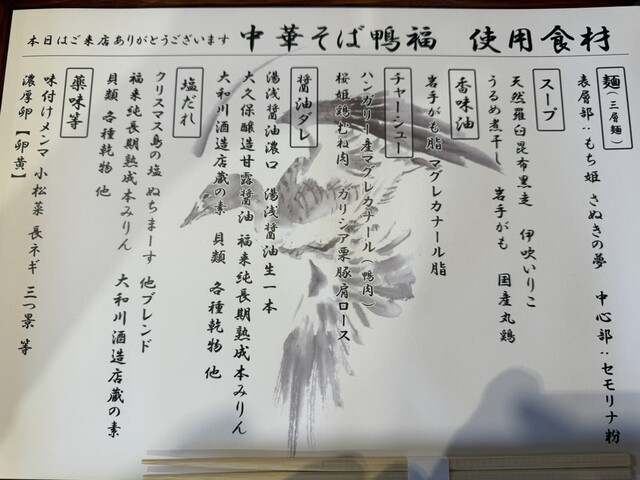 本日はご来店ありがとうございます 中華そば鴨福 使用食材
麺(三層麺)
表層部:もち姫 さぬきの夢 中心部:セモリナ粉
スープ
天然羅臼昆布黒走 伊吹いりこ
うるめ煮干し 岩手がも 国産丸鶏
香味油
岩手がも脂 マグレカナール脂
チャーシュー
ハンガリー産マグレカナール(鴨肉)
桜姫鶏むね肉 ガリシア栗豚肩ロース
醤油ダレ
湯浅醤油濃口 湯浅醤油生一本
大久保醸造甘露醤油 福来純長期熟成本みりん
大和川酒造店蔵の素 貝類 各種乾物 他
塩だれ
クリスマス島の塩 ぬちまーす 他ブレンド
福来純長期熟成本みりん 大和川酒造店蔵の素
貝類 各種乾物 他
薬味等
味付けメンマ 小松菜 長ネギ 三つ景 等
濃厚卵【卵黄】